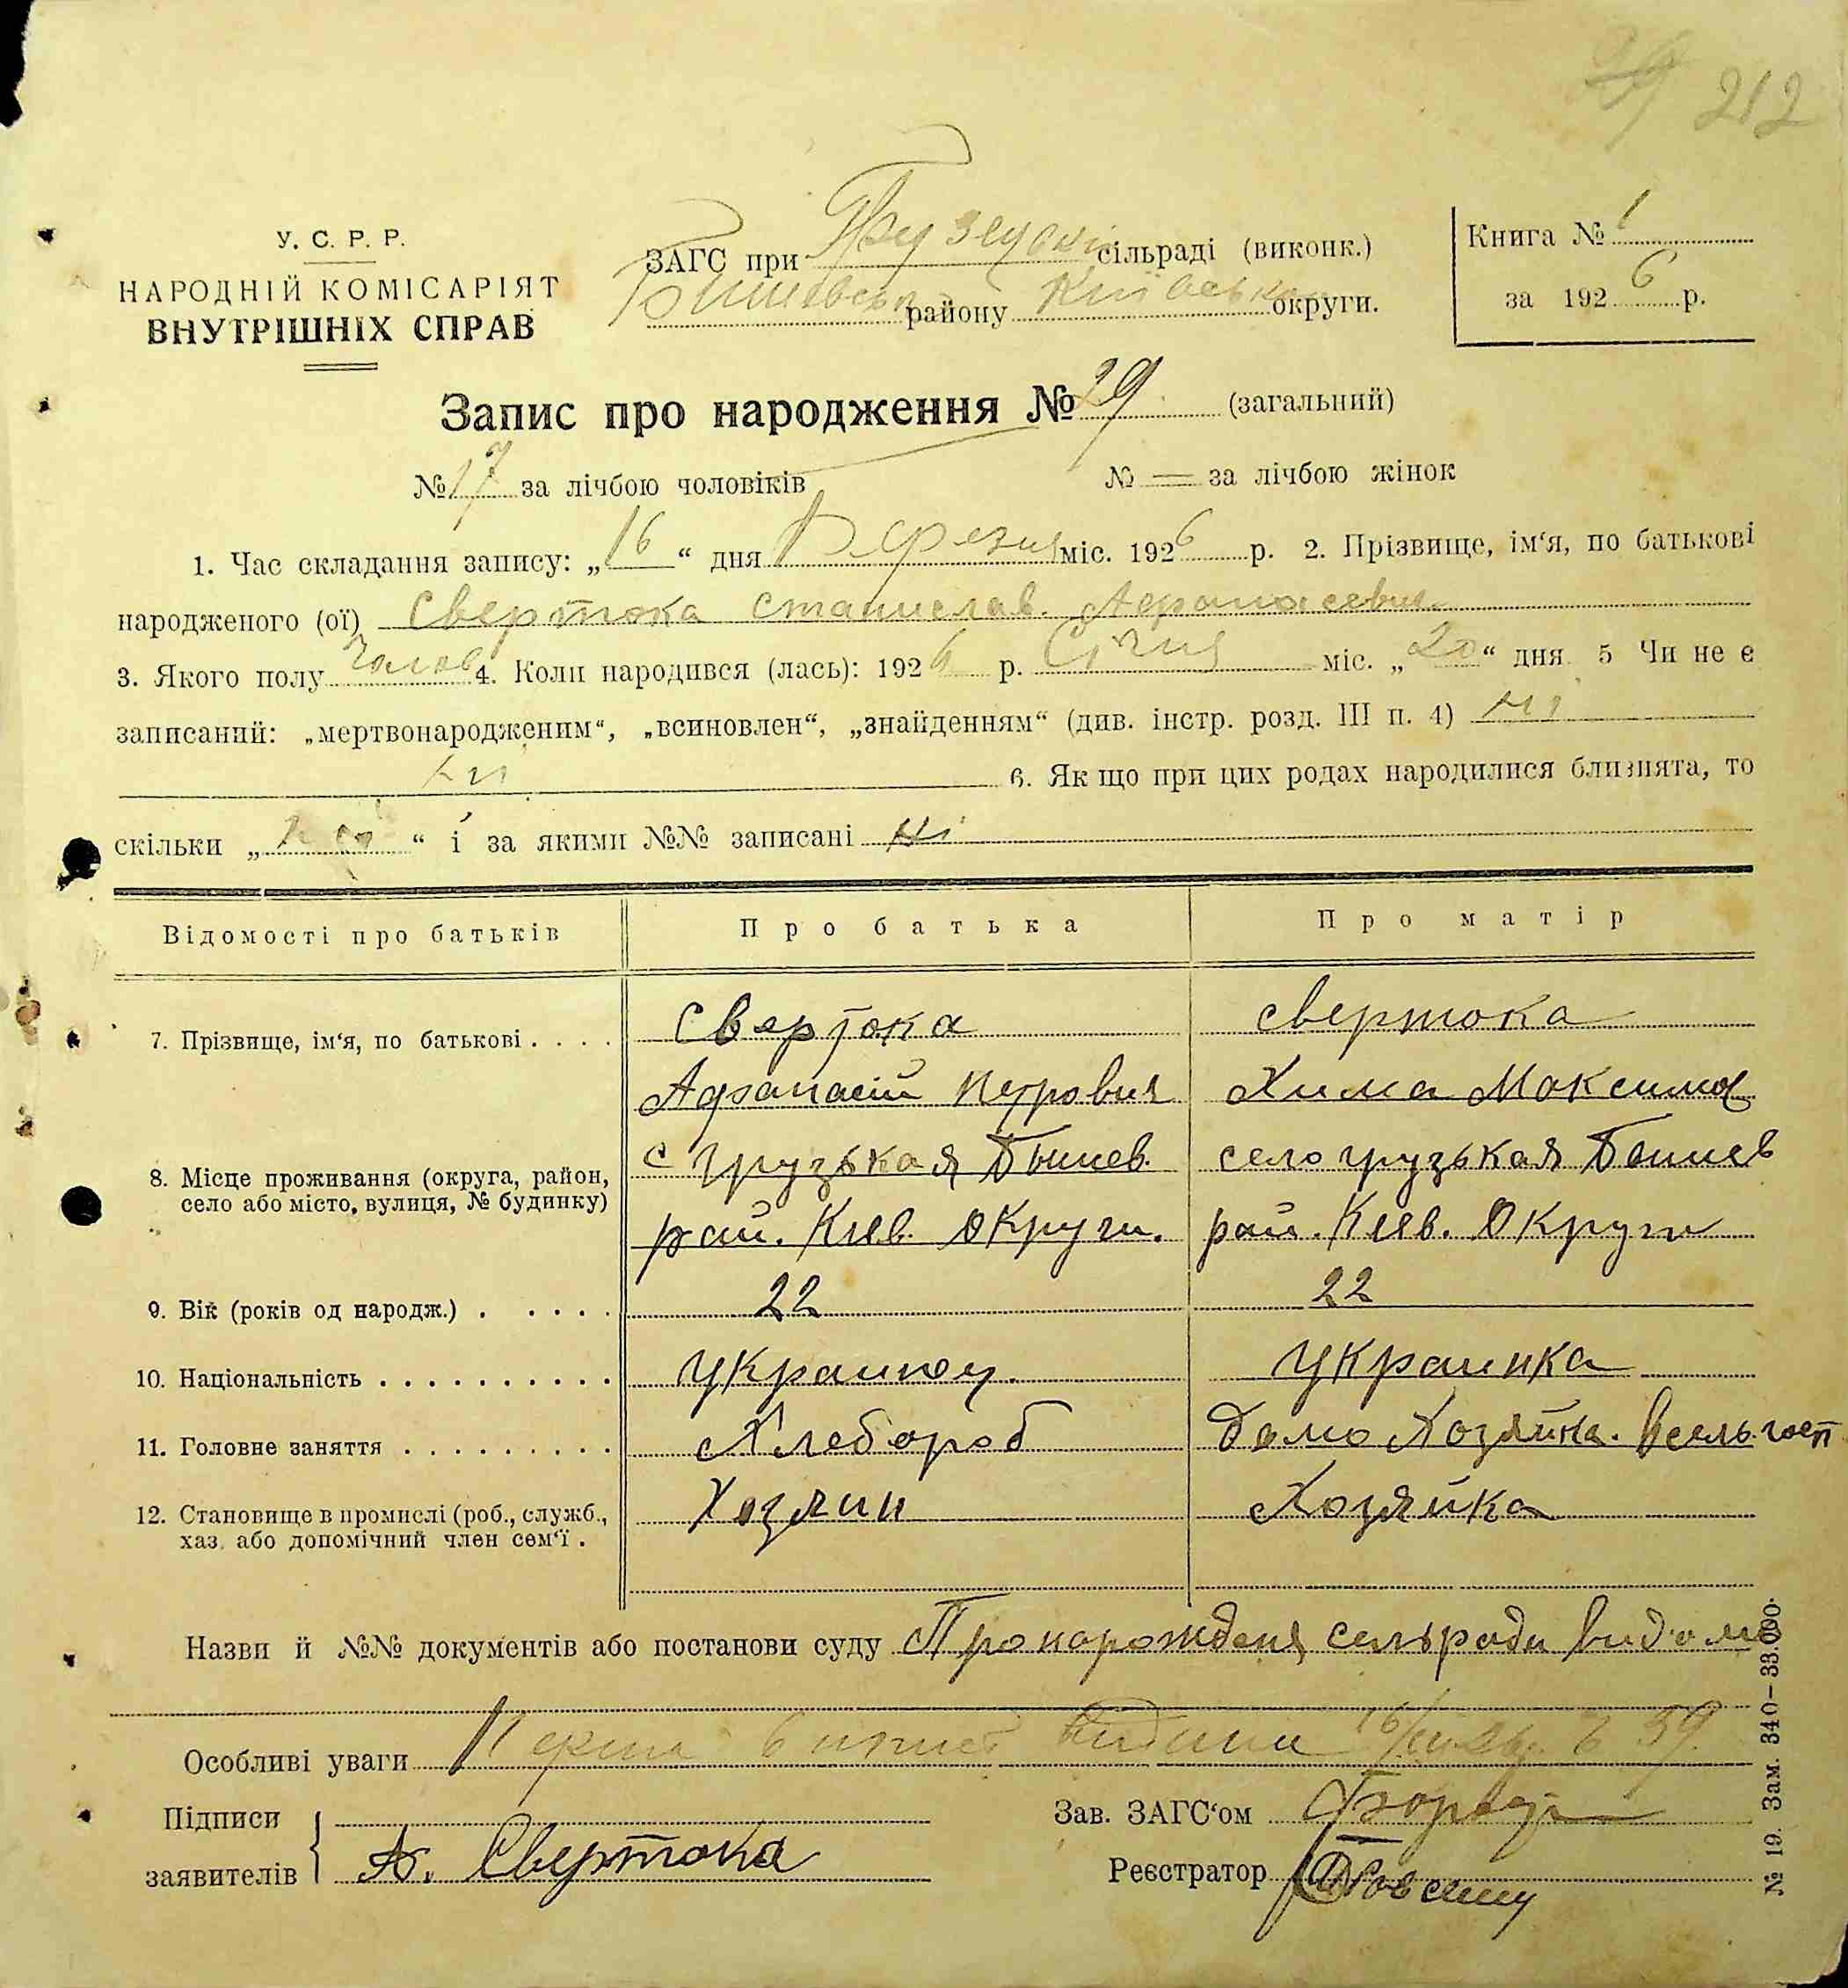 212
У. С. Р. Р.
НАРОДНІЙ КОМІСАРІЯТ
ВНУТРІШНІХ СПРАВ
ЗАГС при сільраді (виконк.)
району Київської округи.
Книга № 1
за 1926 р.
Запис про народження № 29 (загальний)
№ 17 за лічбою чоловіків № — за лічбою жінок
1. Час складання запису: „16“ дня Березня міс. 1926 р. 2. Прізвище, ім‘я, по батькові
народженого (ої) Свертока Станислав Афанасевич
3. Якого полу Чолов 4. Коли народився (лась): 1926 р. Січня міс. „20“ дня 5 Чи не є
записаний: „мертвонародженим“, „всиновлен“, „знайденням“ (див. інстр. розд. III п. 4) ні
ні 6. Як що при цих родах народилися близнята, то
скільки „ “ і за якими №№ записані ні
Відомості про батьків Про батька Про матір
7. Прізвище, ім‘я, по батькові . . . . Свертока свертока
Афанасий Петрович Хима Максимов
8. Місце проживання (округа, район, село або місто, вулиця, № будинку) с Грузькая Бышев. село грузькая Бышев
рай. Киев. Округи. рай. Киев. Округи
9. Вік (років од народж.) . . . . . 22 22
10. Національність . . . . . . . . . . Украинец. Украинка
11. Головне заняття . . . . . . . . . Хлебороб Домо Хозяйка. Всельхосп
12. Становище в промислі (роб., служб., хаз. або допомічний член сем‘ї . Хозяин Хозяйка
Назви й №№ документів або постанови суду Про нарождения сельради видомо
Особливі уваги Перша видана 39
Підписи
заявителів А. Свертока
Зав. ЗАГС‘ом
Реєстратор
№ 19. Зам. 340—33.000.